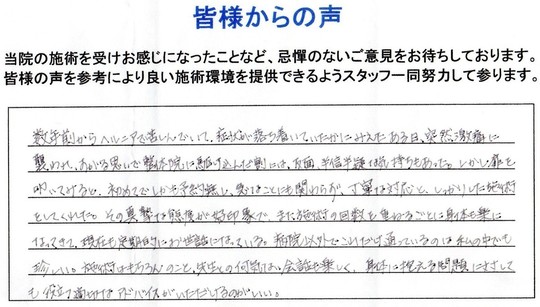 皆様からの声
当院の施術を受けお感じになったことなど、忌憚のないご意見をお待ちしております。
皆様の声を参考により良い施術環境を提供できるようスタッフ一同努力して参ります。
数年前からヘルニアで苦しんでいて、症状が落ち着いていたかにみえたある日、突然激痛に
襲われ、すがる思いで整体院に駆け込んだ割には、反面、半信半疑な気持ちもあった。しかし、扉を
叩いてみると、初めてでしかも予約無し、急なことにも関わらず、丁寧な対応と、しっかりした施術
をしてくれた。その真摯な態度が好印象で、また施術の回数を重ねるごとに身体も楽に
なってきて、現在も定期的にお世話になっている。病院以外でこれだけ通っているのは私の中でも
珍しい。施術はもちろんのこと、先生との何気ない会話も楽しく、身体に抱える問題にまさしても
役立つ適切なアドバイスがいただけるのがいい。